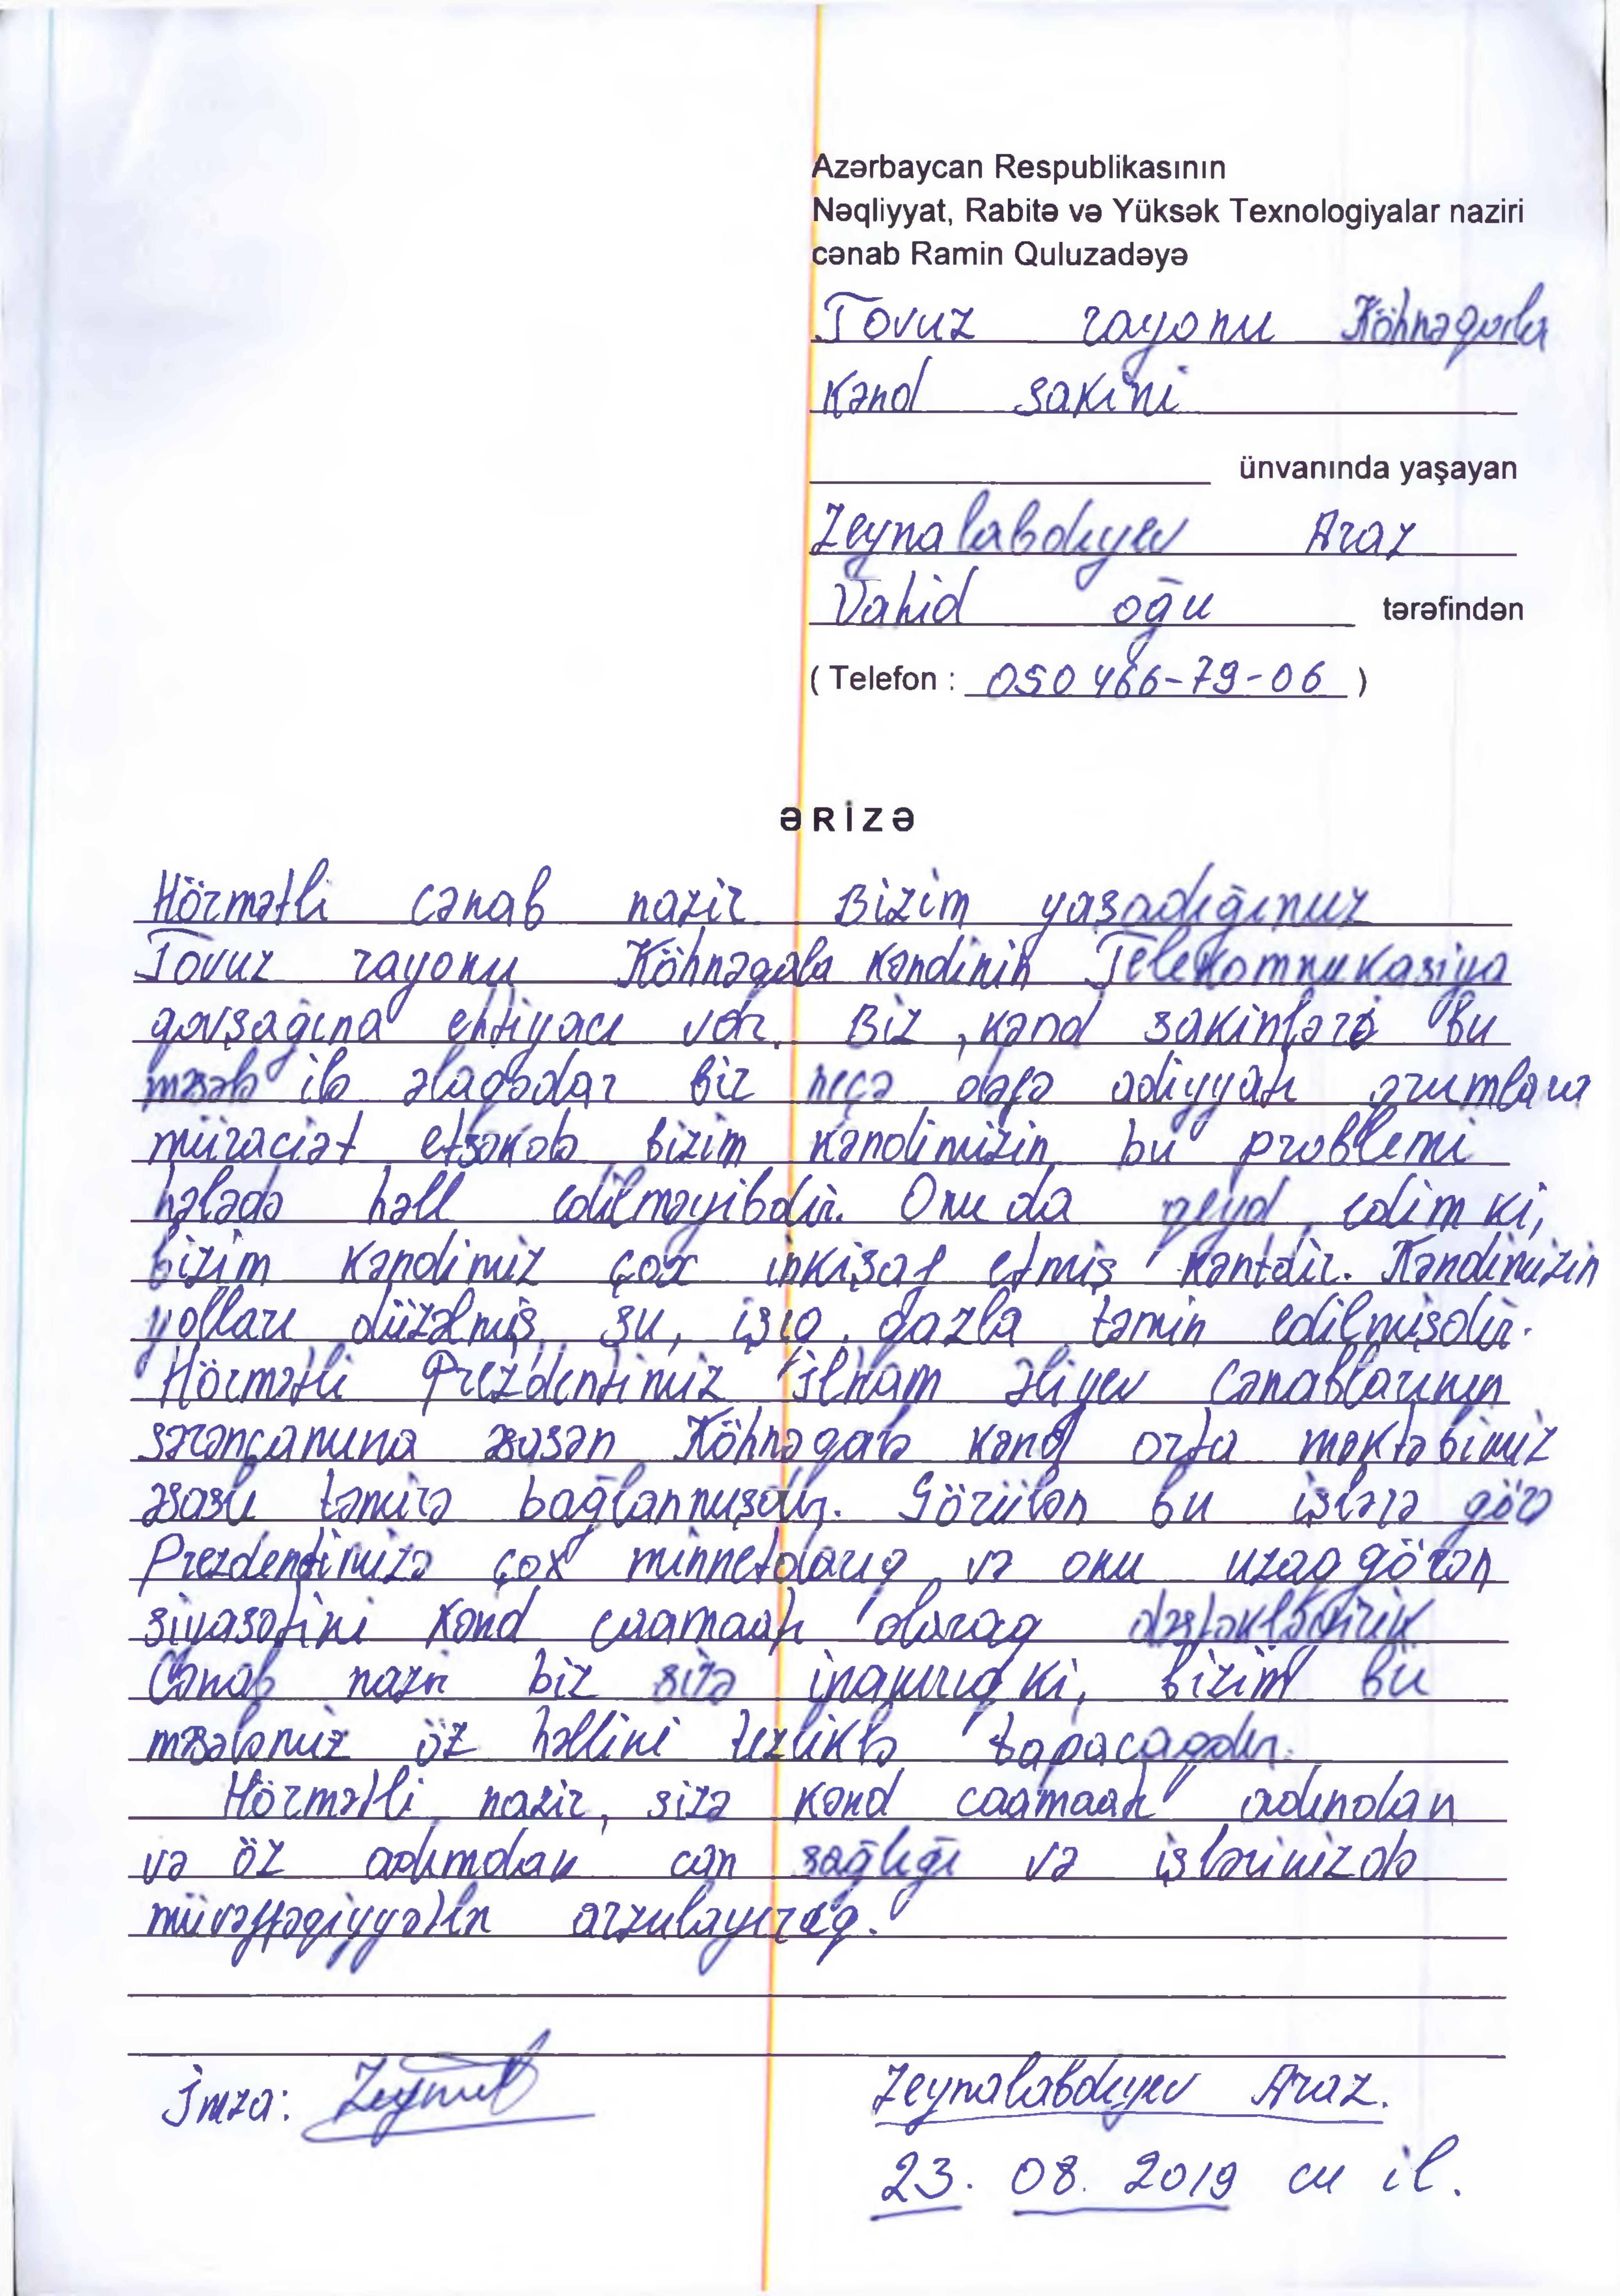 Azərbaycan Respublikasının
Nəqliyyat, Rabitə və Yüksək Texnologiyalar naziri
cənab Ramin Quluzadəyə
Tovuz rayonu Köhnəqala
Kənd sakini
ünvanında yaşayan
Zeynalabdıyev Araz
Vahid oğu tərəfindən
( Telefon : 050 466-79-06 )
ƏRİZƏ
Hörmətli cənab nazir. Bizim yaşadığımız
Tovuz rayonu Köhnəqala kəndinin Telekomnukasiya
qovşağına ehtiyacı var. Biz, kənd sakinləri bu
məsələ ilə əlaqədar bir neçə dəfə adiyyatı qrumlara
müraciət etsəkdə bizim kəndimizin bu problemi
hələdə həll edilməyibdir. Onu da qeyd edim ki,
bizim kəndimiz çox inkişaf etmiş kəntdir. Kəndimizin
yolları düzəlmiş, su, işıq, qazla təmin edilmişdir.
Hörmətli Prezdentimiz İlham Əliyev cənablarının
sərəncamına əsasən Köhnəqala kənd orta məktəbimiz
əsaslı təmirə bağlanmışdır. Görülən bu işlərə görə
Prezdentimizə çox minnetdarıq və onu uzaq görən
siyasətini kənd caamaatı olaraq dəstəkləyirik
Cənab nazir biz sizə inanırıq ki, bizim bu
məsələmiz öz həllini tezliklə tapacaqdır.
Hörmətli nazir, sizə kənd caamaatı adından
və öz adımdan can sağlığı və işlərinizdə
müvəffəqiyyətlər arzulayıraq.
İmza:
Zeynalabdıyev Araz.
23. 08. 2019 cu il.